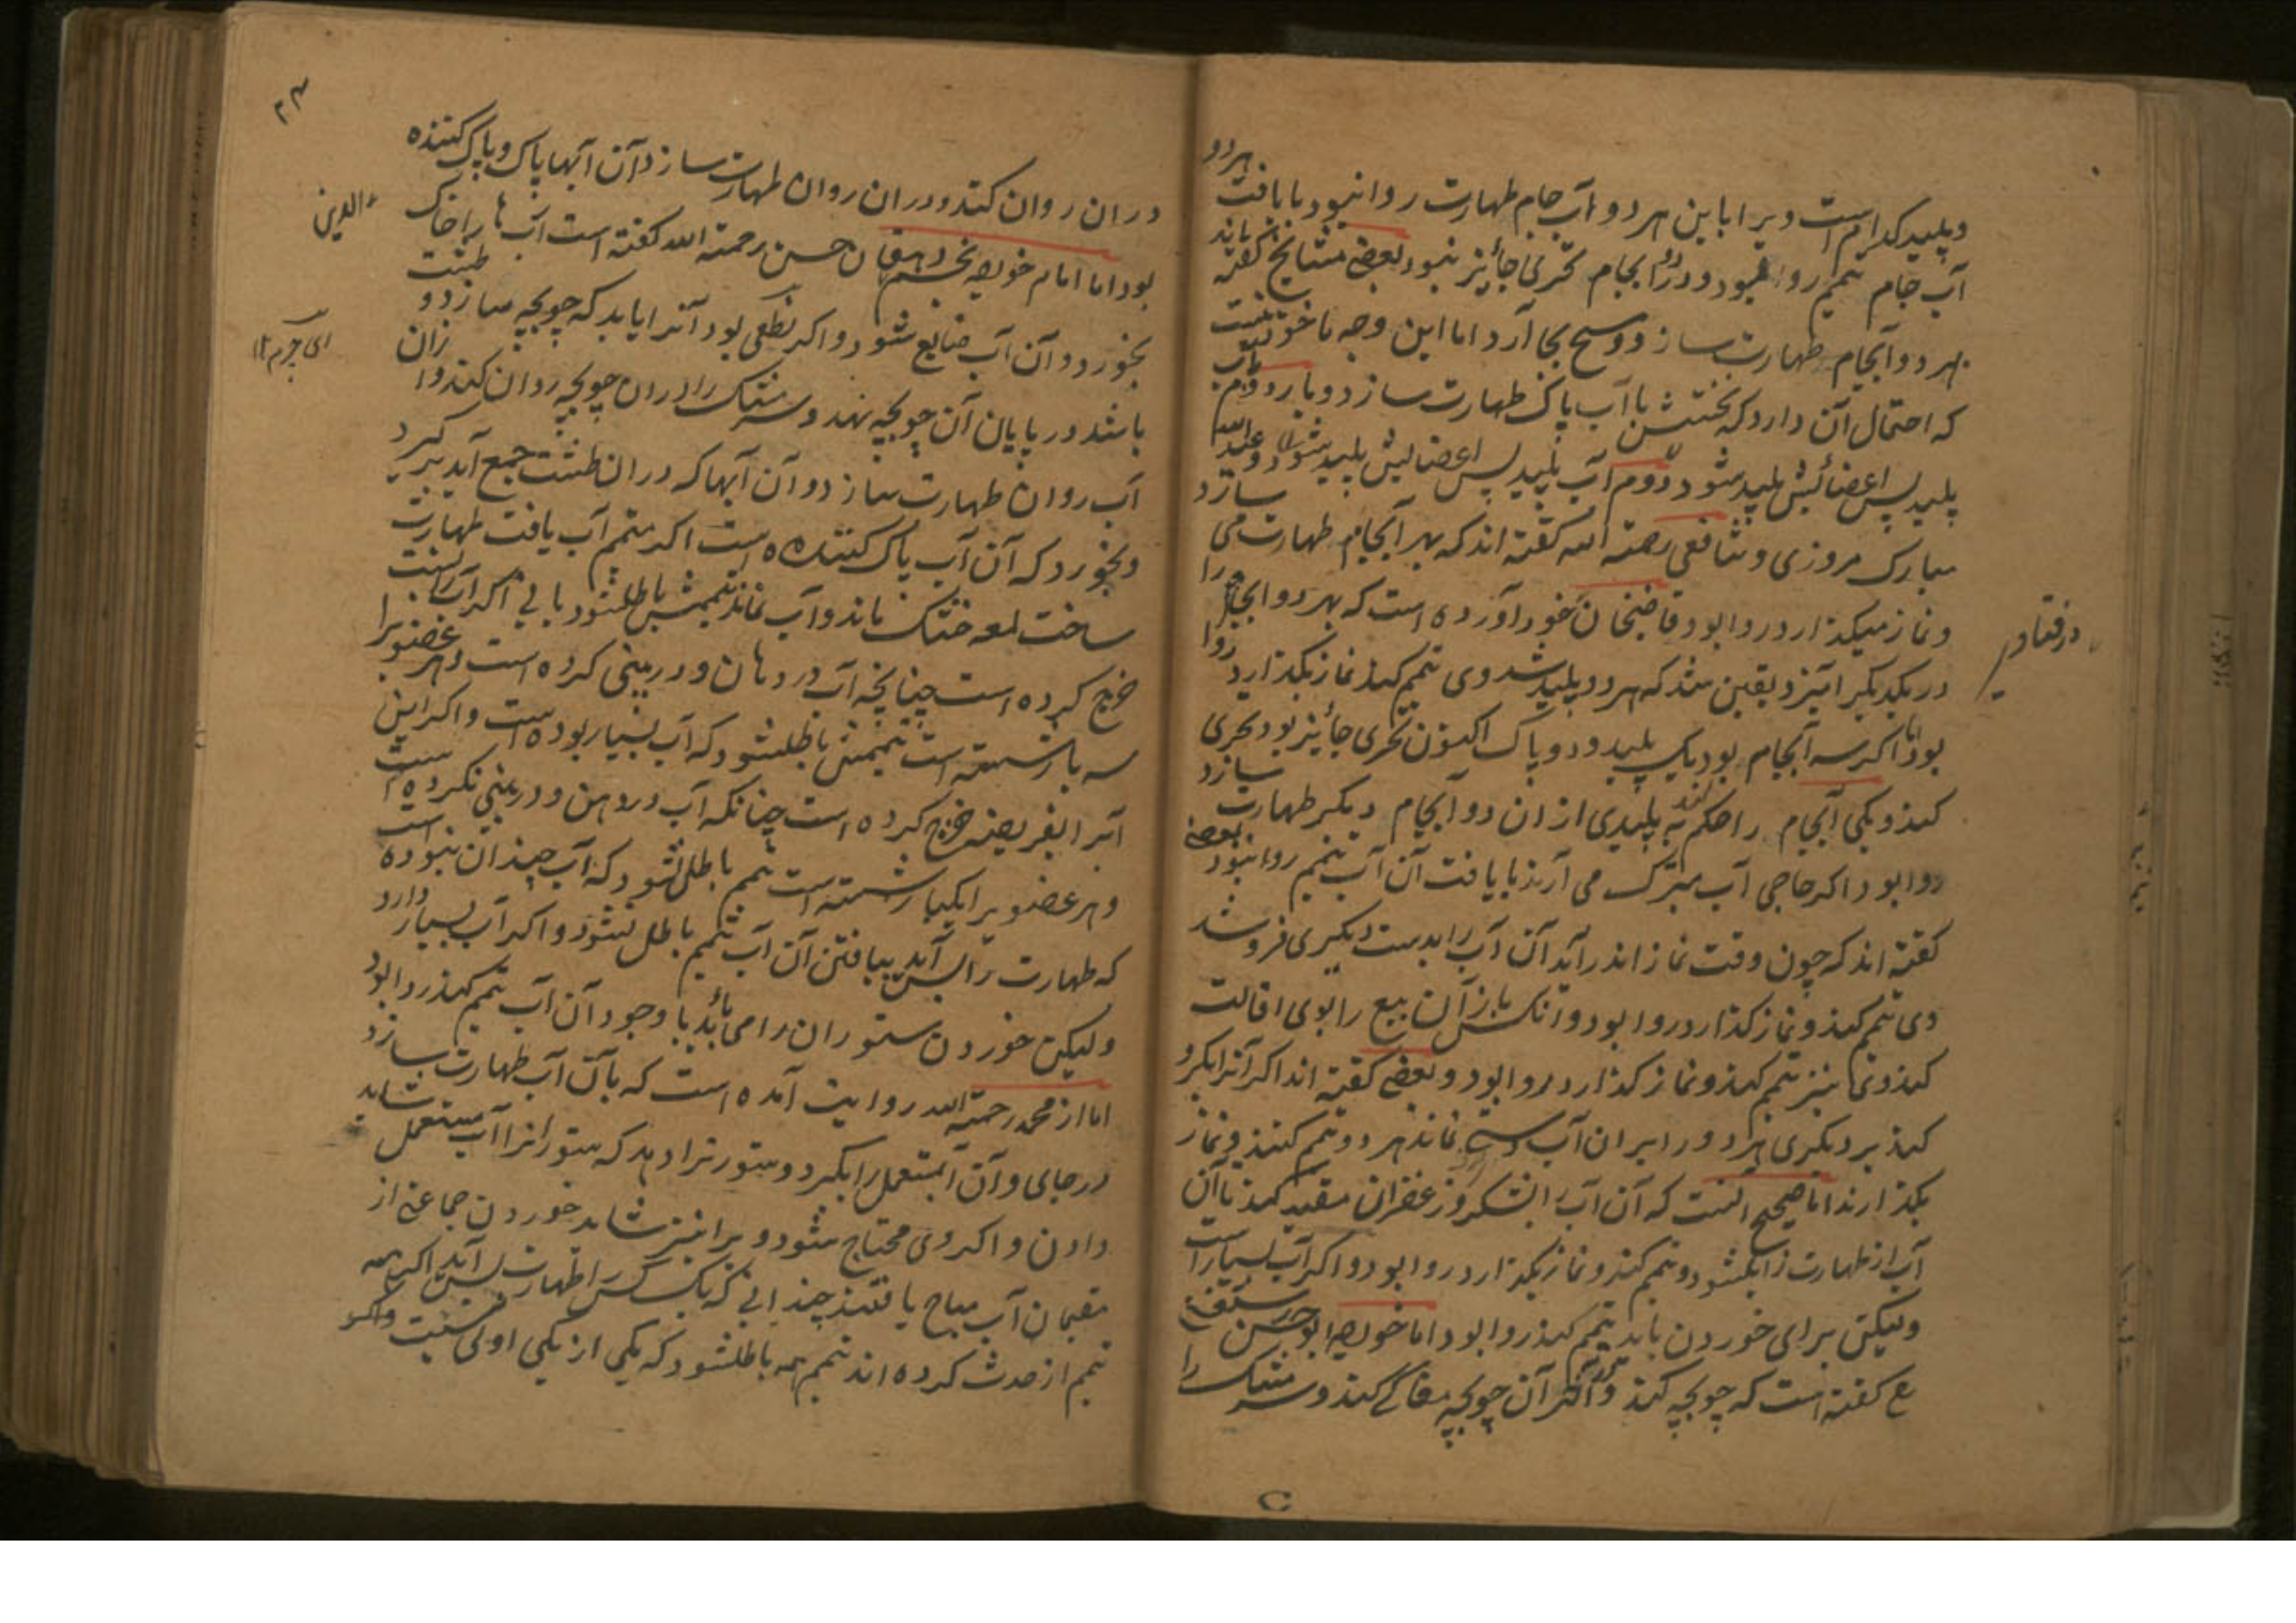 وپلید کدام است ویرا باین هر دو آب جام طهارت روا نبود با یافت هردو
آب جام تیمم روا نبود ودر دو آبجام تحری جائز نبود بعضی مشایخ گفته اند باید
بهر دو آبجام طهارت سازد ومسح بجا آرد اما این وجه ناخوش است
که احتمال آن دارد که نخستش با آب پاک طهارت سازد و بار دوم بآب
پلید پس اعضائیش پلید شود دوم آب پلید پس اعضائیش پلید شود و عبد الله
مبارک مروزی و شافعی رحمة الله گفته اند که بهر آبجام طهارت می سازد
ونماز میگذارد روا بود قاضیخان خود آورده است که بهر دو آبجام را
در یکدیگر آمیزد یقین شد که هر دو پلید شد وی تیمم کند نماز بگذارد روا
بود اما اگر سه آبجام بود یک پلید و دو پاک اکنون تحری جائز بود تحری
کند و یکی آبجام را حکم کند به پلیدی ازان دو آبجام دیگر طهارت سازد
روا بود اگر حاجی آب متبرک می آرند با یافت آن آب تیمم روا نبود بعضی
گفته اند که چون وقت نماز اندر آید آن آب را بدست دیگری فروشد
وی تیمم کند ونماز گذارد روا بود وآنکس باز آن بیع را بوی اقالت
کند وی نیز تیمم کند ونماز گذارد روا بود وبعضی گفته اند اگر آنرا بگرو
کند بر دیگری هر دو را بران آب دستی نماند هر دو تیمم کنند و نماز
بگذارند اما صحیح آنست که آن آب را بشکر وزعفران مقید کند تا آن
آب از طهارت زایل شود وتیمم کند ونماز بگذارد روا بود واگر آب بسیار است
ولیکن برای خوردن باید تیمم کند روا بود اما خواجه ابو حسن رستغفنی
رح گفته است که جویچه کند و در آخر آن جویچه مغاکی کند وسر مشک را
در فتاوی
۲۳
دران روان کند ودران روان طهارت سازد آن آبها پاک وپاک کننده
بود اما امام خواجه نجم دهقان حسن رحمة الله گفته است آب ها را خاک
الدین
بخورد وآن آب ضایع شود واگر نطعی بود آنرا باید که جویچه سازد و طشت
ای چرم ۱۲
باشد در پایان آن جویچه نهد وسر مشک را دران جویچه روان کند وازان
آب روان طهارت سازد وآن آبها که دران طشت جمع آید بر گیرد
وبخورد که آن آب پاک کننده است اگر متیمم آب یافت طهارت
ساخت لمعه خشک ماند وآب نماند تیممش باطل شود یا نی اگر آب را بسنت
خرج کرده است چنانچه آب در دهان ودر بینی کرده است وهر عضویرا
سه بار شسته است تیممش باطل شود که آب بسیار بوده است واگر این
آب را بفریضه خرج کرده است چنانکه آب در دهن ودر بینی نکرده است
وهر عضویرا یکبار شسته است تیمم باطل نشود که آب چندان نبوده است
که طهارت را بس آید بیافتن آن آب تیمم باطل نشود واگر آب بسیار دارد
ولیکن خوردن ستوران را می باید با وجود آن آب تیمم کند روا بود
اما از محمد رحمة الله روایت آمده است که بآن آب طهارت سازد
در جای وآن آب مستعمل را بگیرد وستور ترا دهد که ستورانرا آب مستعمل شاید
دادن واگر وی محتاج شود ویرا نیز شاید خوردن جماعتی از
مقیمان آب مباح یافتند چندانی که یک کس را طهارت بس آید اگر همه
تیمم از حدث کرده اند تیمم همه باطل شود که یکی از یکی اولی نیست واگر